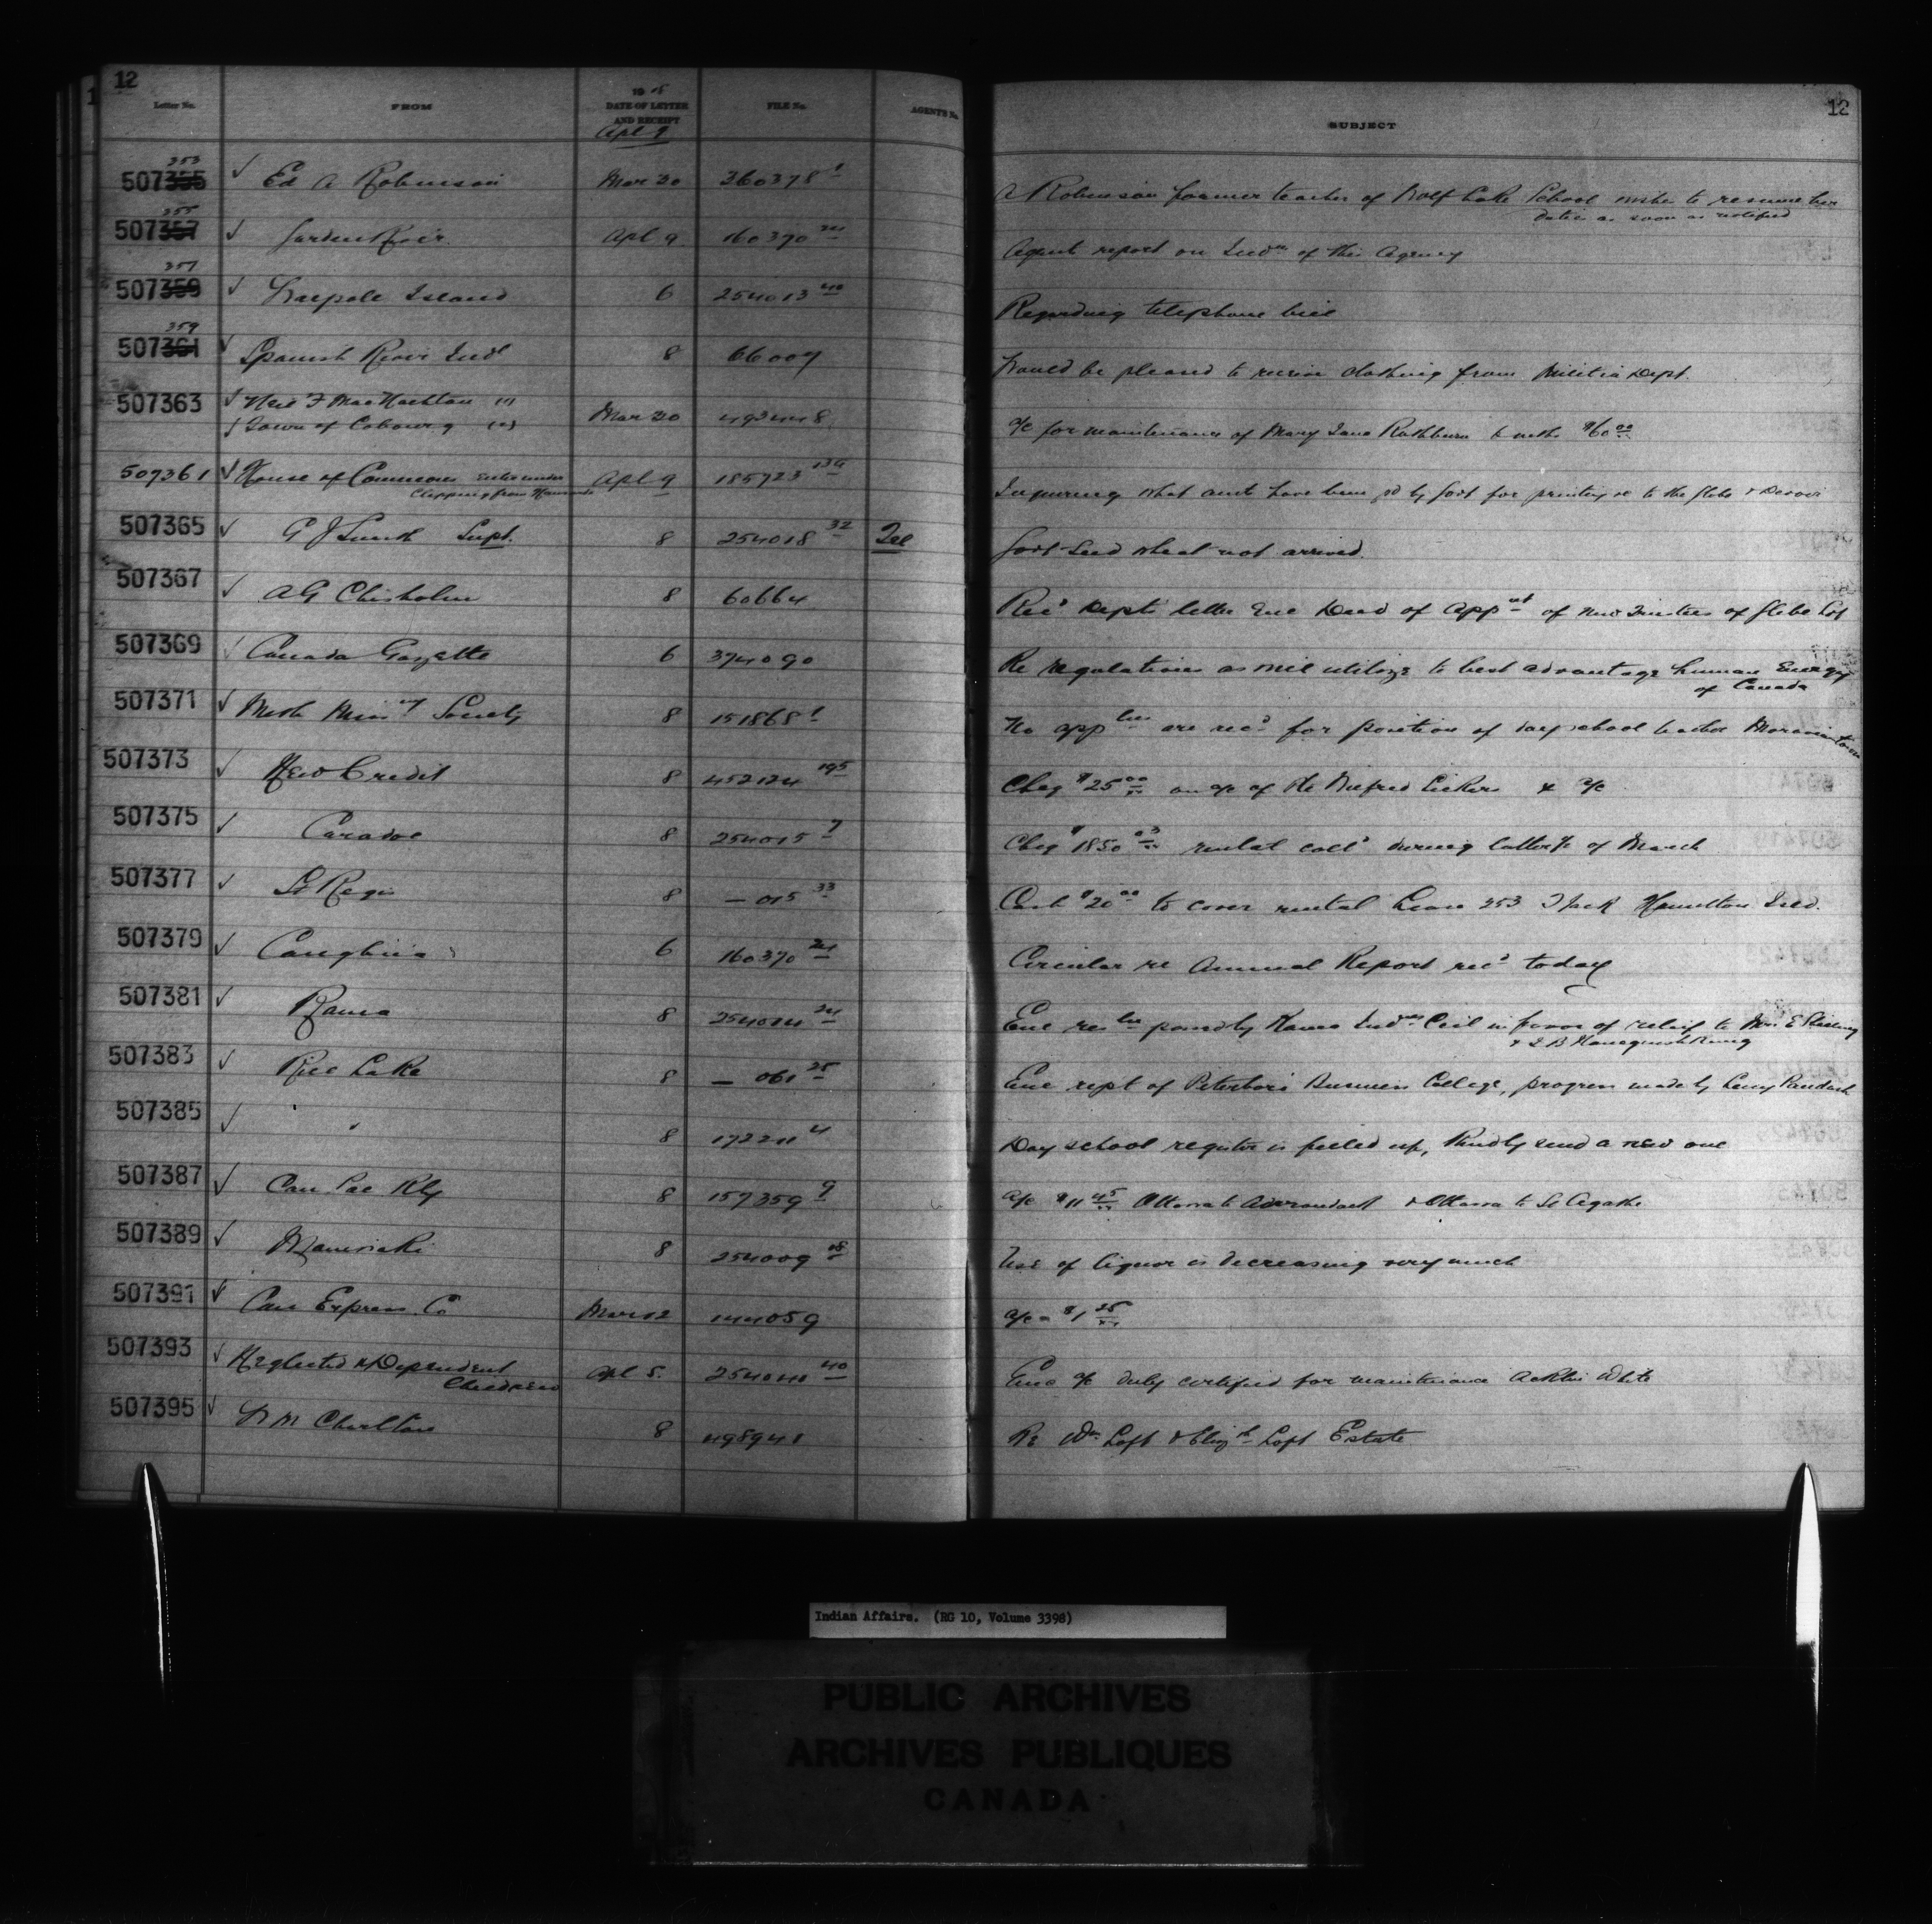 12
Letter No. FROM 1918 DATE OF LETTER AND RECEIPT FILE No. AGENT'S No. SUBJECT 12
Apl 9
507353 Ed A Robinson Mar 30 360378 1 A Robinson former teacher of Wolf Lake School wishes to resume her
duties as soon as notified
507355 Garden River Apl 9 160370 Agents report on Inds of this Agency
507357 Walpole Island 6 254013 40 Regarding telephone bill
507359 Spanish River Inds 8 66009 Would be pleased to receive clothing from Militia Dept.
507363 Neil F MacNachtan (1)
Town of Cobourg (2) Mar 30 493448 a/c for maintenance of Mary Jane Rathburn 6 mths $60 00
507361 House of Commons Enter under Apl 9 185723 Inquiring what amts have been pd by Govt for printing re to the Globe & Devoir
Clipping from
507365 G J Smith Supt. 8 254018 32 Tel Govt Seed wheat not arrived.
507367 A G Chisholm 8 60664 Rec'd Depts letter Enc Deed of Appnt of New Trustees of Glebe Lot
507369 Canada Gazette 6 374090 Re regulations as will utilize to best advantage human Energy
of Canada
507371 Meth Missny Society 8 151868 1 No appln are rec'd for position of day school teacher Moraviantown
507373 New Credit 8 452124 195 Cheq $25 00 on a/c of Wilfred Lickers & a/c
507375 Caradoc 8 254015 7 Cheq $1850 rental coll'd during latter pt of March
507377 St Regis 8 — 015 33 Cash $20 00 to cover rental Lease 253 Hamilton Isld.
507379 6 160370 Circular re Annual Report rec'd today
507381 Rama 8 254014 24 Enc resln passed by Rama Inds Ccil in favor of relief to Mrs E
507383 Rice Lake 8 — 061 25 Enc rept of Peterboro Business College, progress made by Paudash
507385 " " 8 172211 4 Day school register is filled up, Kindly send a new one
507387 Can Pac Rly 8 157359 9 a/c $11 45 Ottawa to & Ottawa to St Agathe
507389 Maniwaki 8 254009 Use of liquor is decreasing very much
507391 Can Express Co Mar 12 144059 a/c - $1 25
507393 Neglected & Dependent
Children Apl 5. 254040 40 Enc a/c duly certified for maintenance White
507395 W M Charlton 8 498941 Re Wm Loft & Elizth Loft Estate
Indian Affairs. (RG 10, Volume 3398)
PUBLIC ARCHIVES
ARCHIVES PUBLIQUES
CANADA